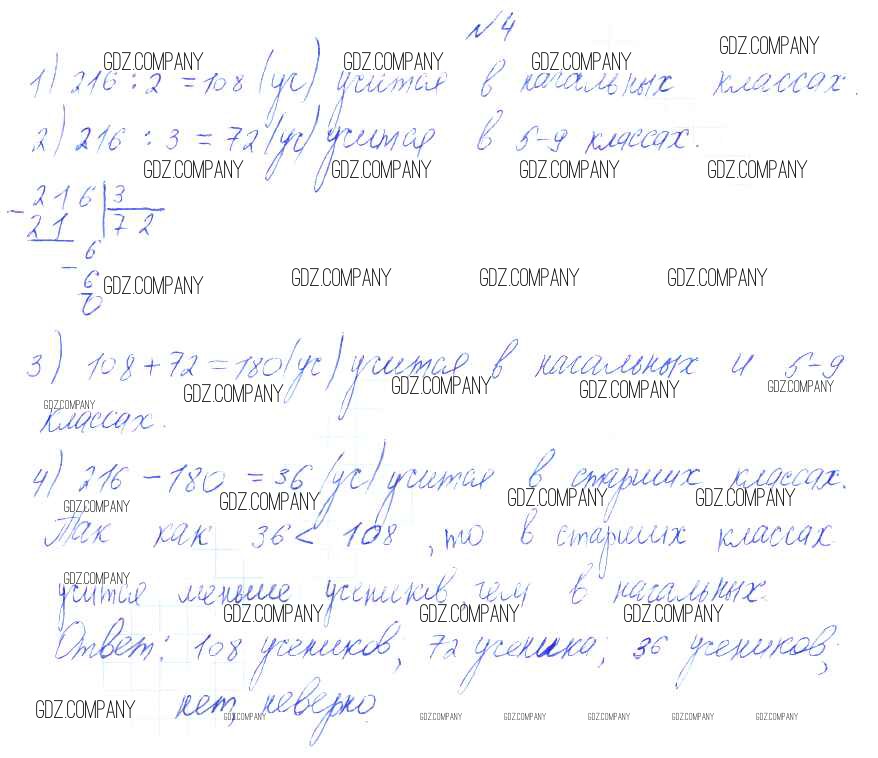 №4
GDZ.COMPANY GDZ.COMPANY GDZ.COMPANY GDZ.COMPANY
1) 216 : 2 = 108 (уч) учится в начальных классах.
2) 216 : 3 = 72 (уч) учится в 5-9 классах.
GDZ.COMPANY GDZ.COMPANY GDZ.COMPANY GDZ.COMPANY
- 216 | 3
21 | 72
- 6
6
0
GDZ.COMPANY GDZ.COMPANY GDZ.COMPANY GDZ.COMPANY
3) 108 + 72 = 180 (уч) учится в начальных и 5-9
GDZ.COMPANY GDZ.COMPANY GDZ.COMPANY GDZ.COMPANY GDZ.COMPANY
классах.
4) 216 - 180 = 36 (уч) учится в старших классах.
GDZ.COMPANY GDZ.COMPANY GDZ.COMPANY GDZ.COMPANY
Так как 36 < 108, то в старших классах
GDZ.COMPANY
учится меньше учеников, чем в начальных.
GDZ.COMPANY GDZ.COMPANY GDZ.COMPANY
Ответ: 108 учеников, 72 ученика; 36 учеников;
GDZ.COMPANY нет, неверно
GDZ.COMPANY GDZ.COMPANY GDZ.COMPANY GDZ.COMPANY GDZ.COMPANY GDZ.COMPANY